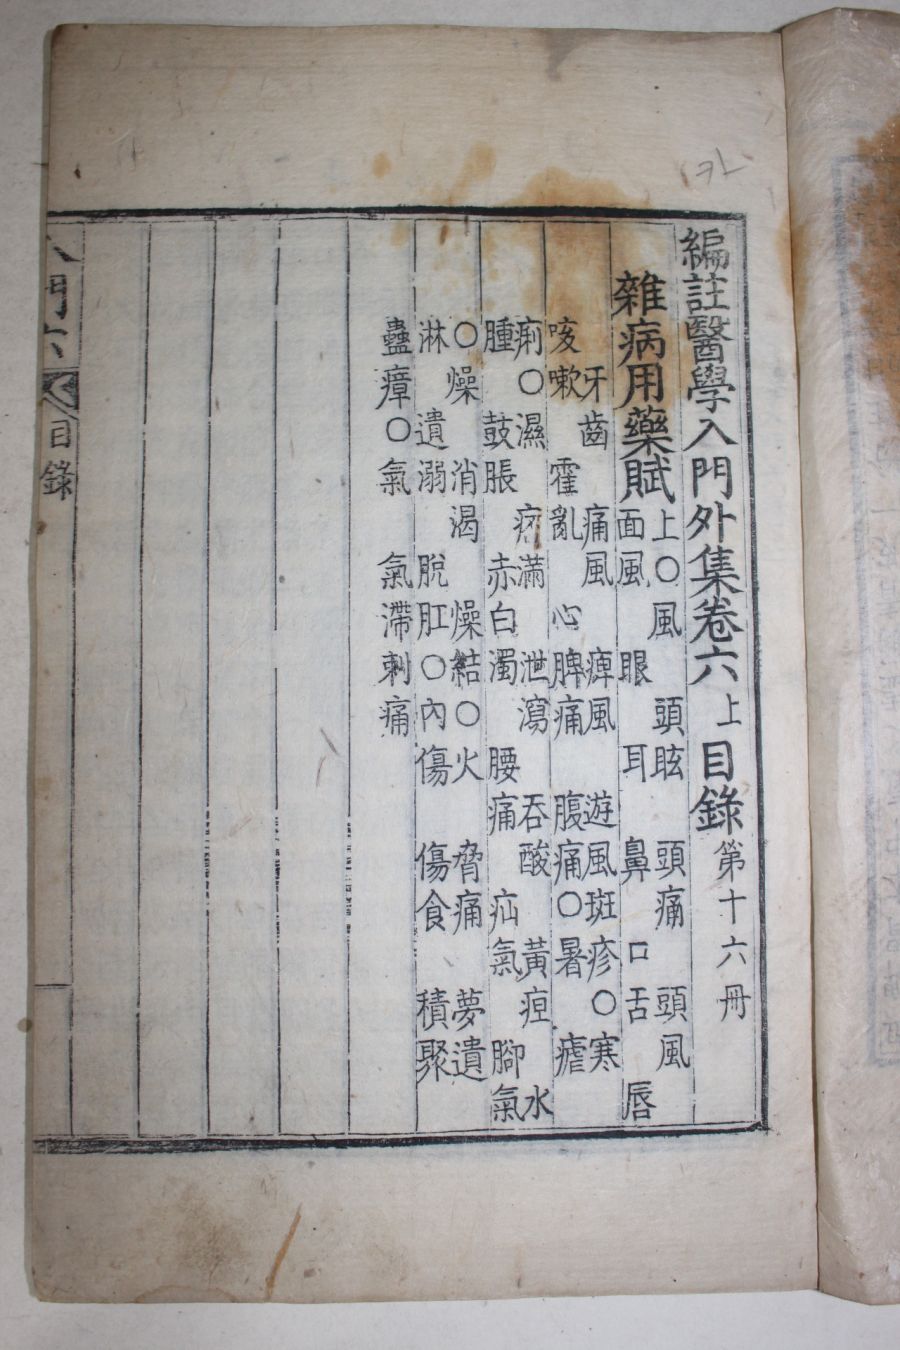 編註醫學入門外集卷六 上 目錄 第十六冊
雜病用藥賦
上〇風 頭眩 頭痛 頭風
面風 眼 耳 鼻 口舌 唇
牙齒 痛風 痺風 遊風斑疹〇寒
咳嗽 霍亂 心脾痛 腹痛〇暑 瘧
痢〇濕 滿 泄瀉 吞酸 黃疸 水
腫 鼓脹 赤白濁 腰痛 疝氣 腳氣
〇燥 消渴 燥結〇火 脅痛 夢遺
淋 遺溺 脫肛〇內傷 傷食 積聚
蠱瘴〇氣 氣滯刺痛
入門六 目錄
카